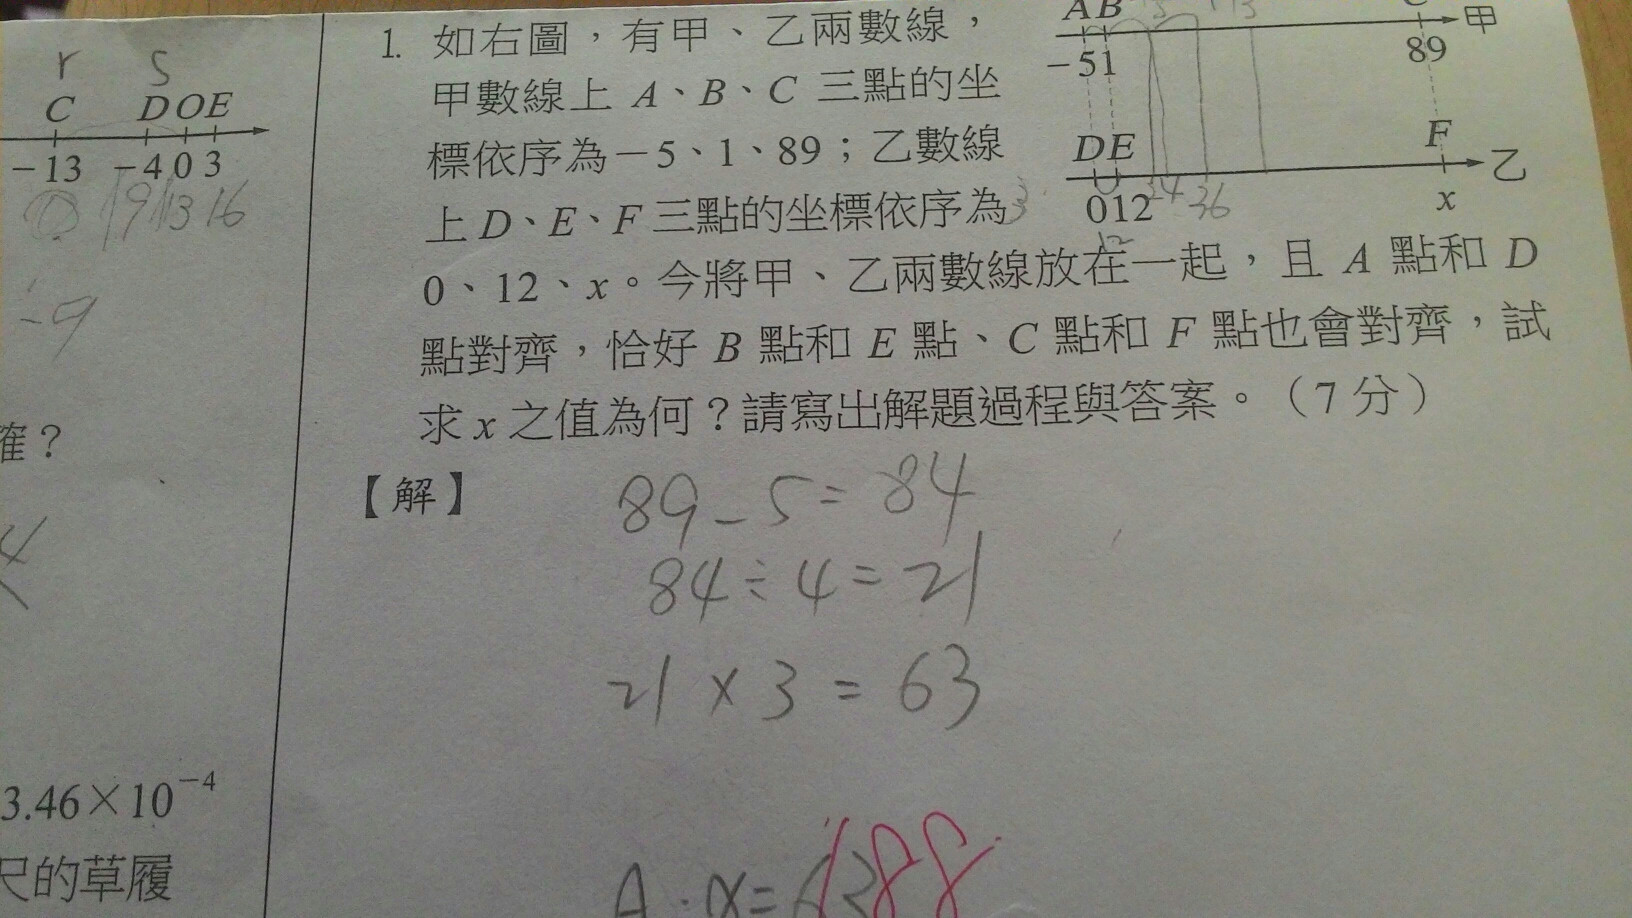 r S
C D O E
-13 -4 0 3
19 13 16
-9
確？
4
3.46×10⁻⁴
尺的草履
1. 如右圖，有甲、乙兩數線，
甲數線上 A、B、C 三點的坐
標依序為－5、1、89；乙數線
上 D、E、F 三點的坐標依序為
0、12、x。今將甲、乙兩數線放在一起，且 A 點和 D
點對齊，恰好 B 點和 E 點、C 點和 F 點也會對齊，試
求 x 之值為何？請寫出解題過程與答案。（7 分）
A B 甲
-5 1 89
D E F 乙
0 12 24 36 x
12
【解】
89-5=84
84÷4=21
21×3=63
A.x=63
188